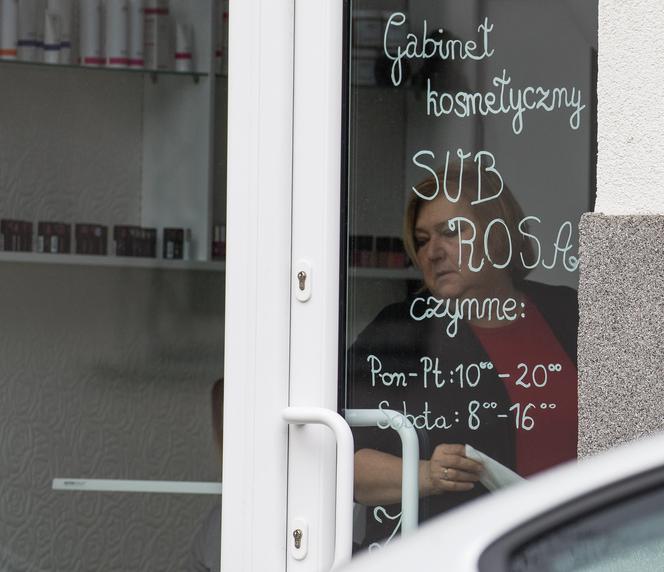 Gabinet
kosmetyczny
SUB
ROSA
czynne:
Pon-Pt:10⁰⁰-20⁰⁰
Sobota: 8⁰⁰-16⁰⁰